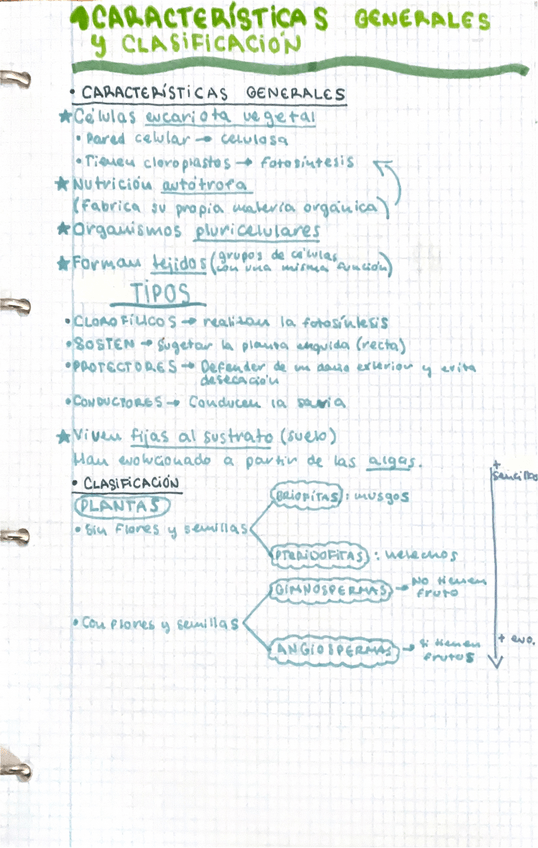 1 CARACTERÍSTICAS GENERALES
y CLASIFICACIÓN
• CARACTERÍSTICAS GENERALES
★ Células eucariota vegetal
• Pared celular → celulosa
• Tienen cloroplastos → fotosíntesis
★ Nutrición autótrofa
(Fabrica su propia materia orgánica)
★ Organismos pluricelulares
★ Forman tejidos (grupos de células
con una misma función)
TIPOS
• CLOROFÍLICOS → realizan la fotosíntesis
• SOSTEN → Sugetar la planta erguida (recta)
• PROTECTORES → Defender de un daño exterior y evita
desecación
• CONDUCTORES → Conducen la savia
★ Viven fijas al sustrato (suelo)
Han evolucionado a partir de las algas.
+ sencillas
• CLASIFICACIÓN
PLANTAS
BRIOFITAS : musgos
• Sin flores y semillas
PTERIDOFITAS : helechos
GIMNOSPERMAS → No tienen
fruto
• Con flores y semillas
ANGIOSPERMAS → Si tienen
frutos
+ evo.